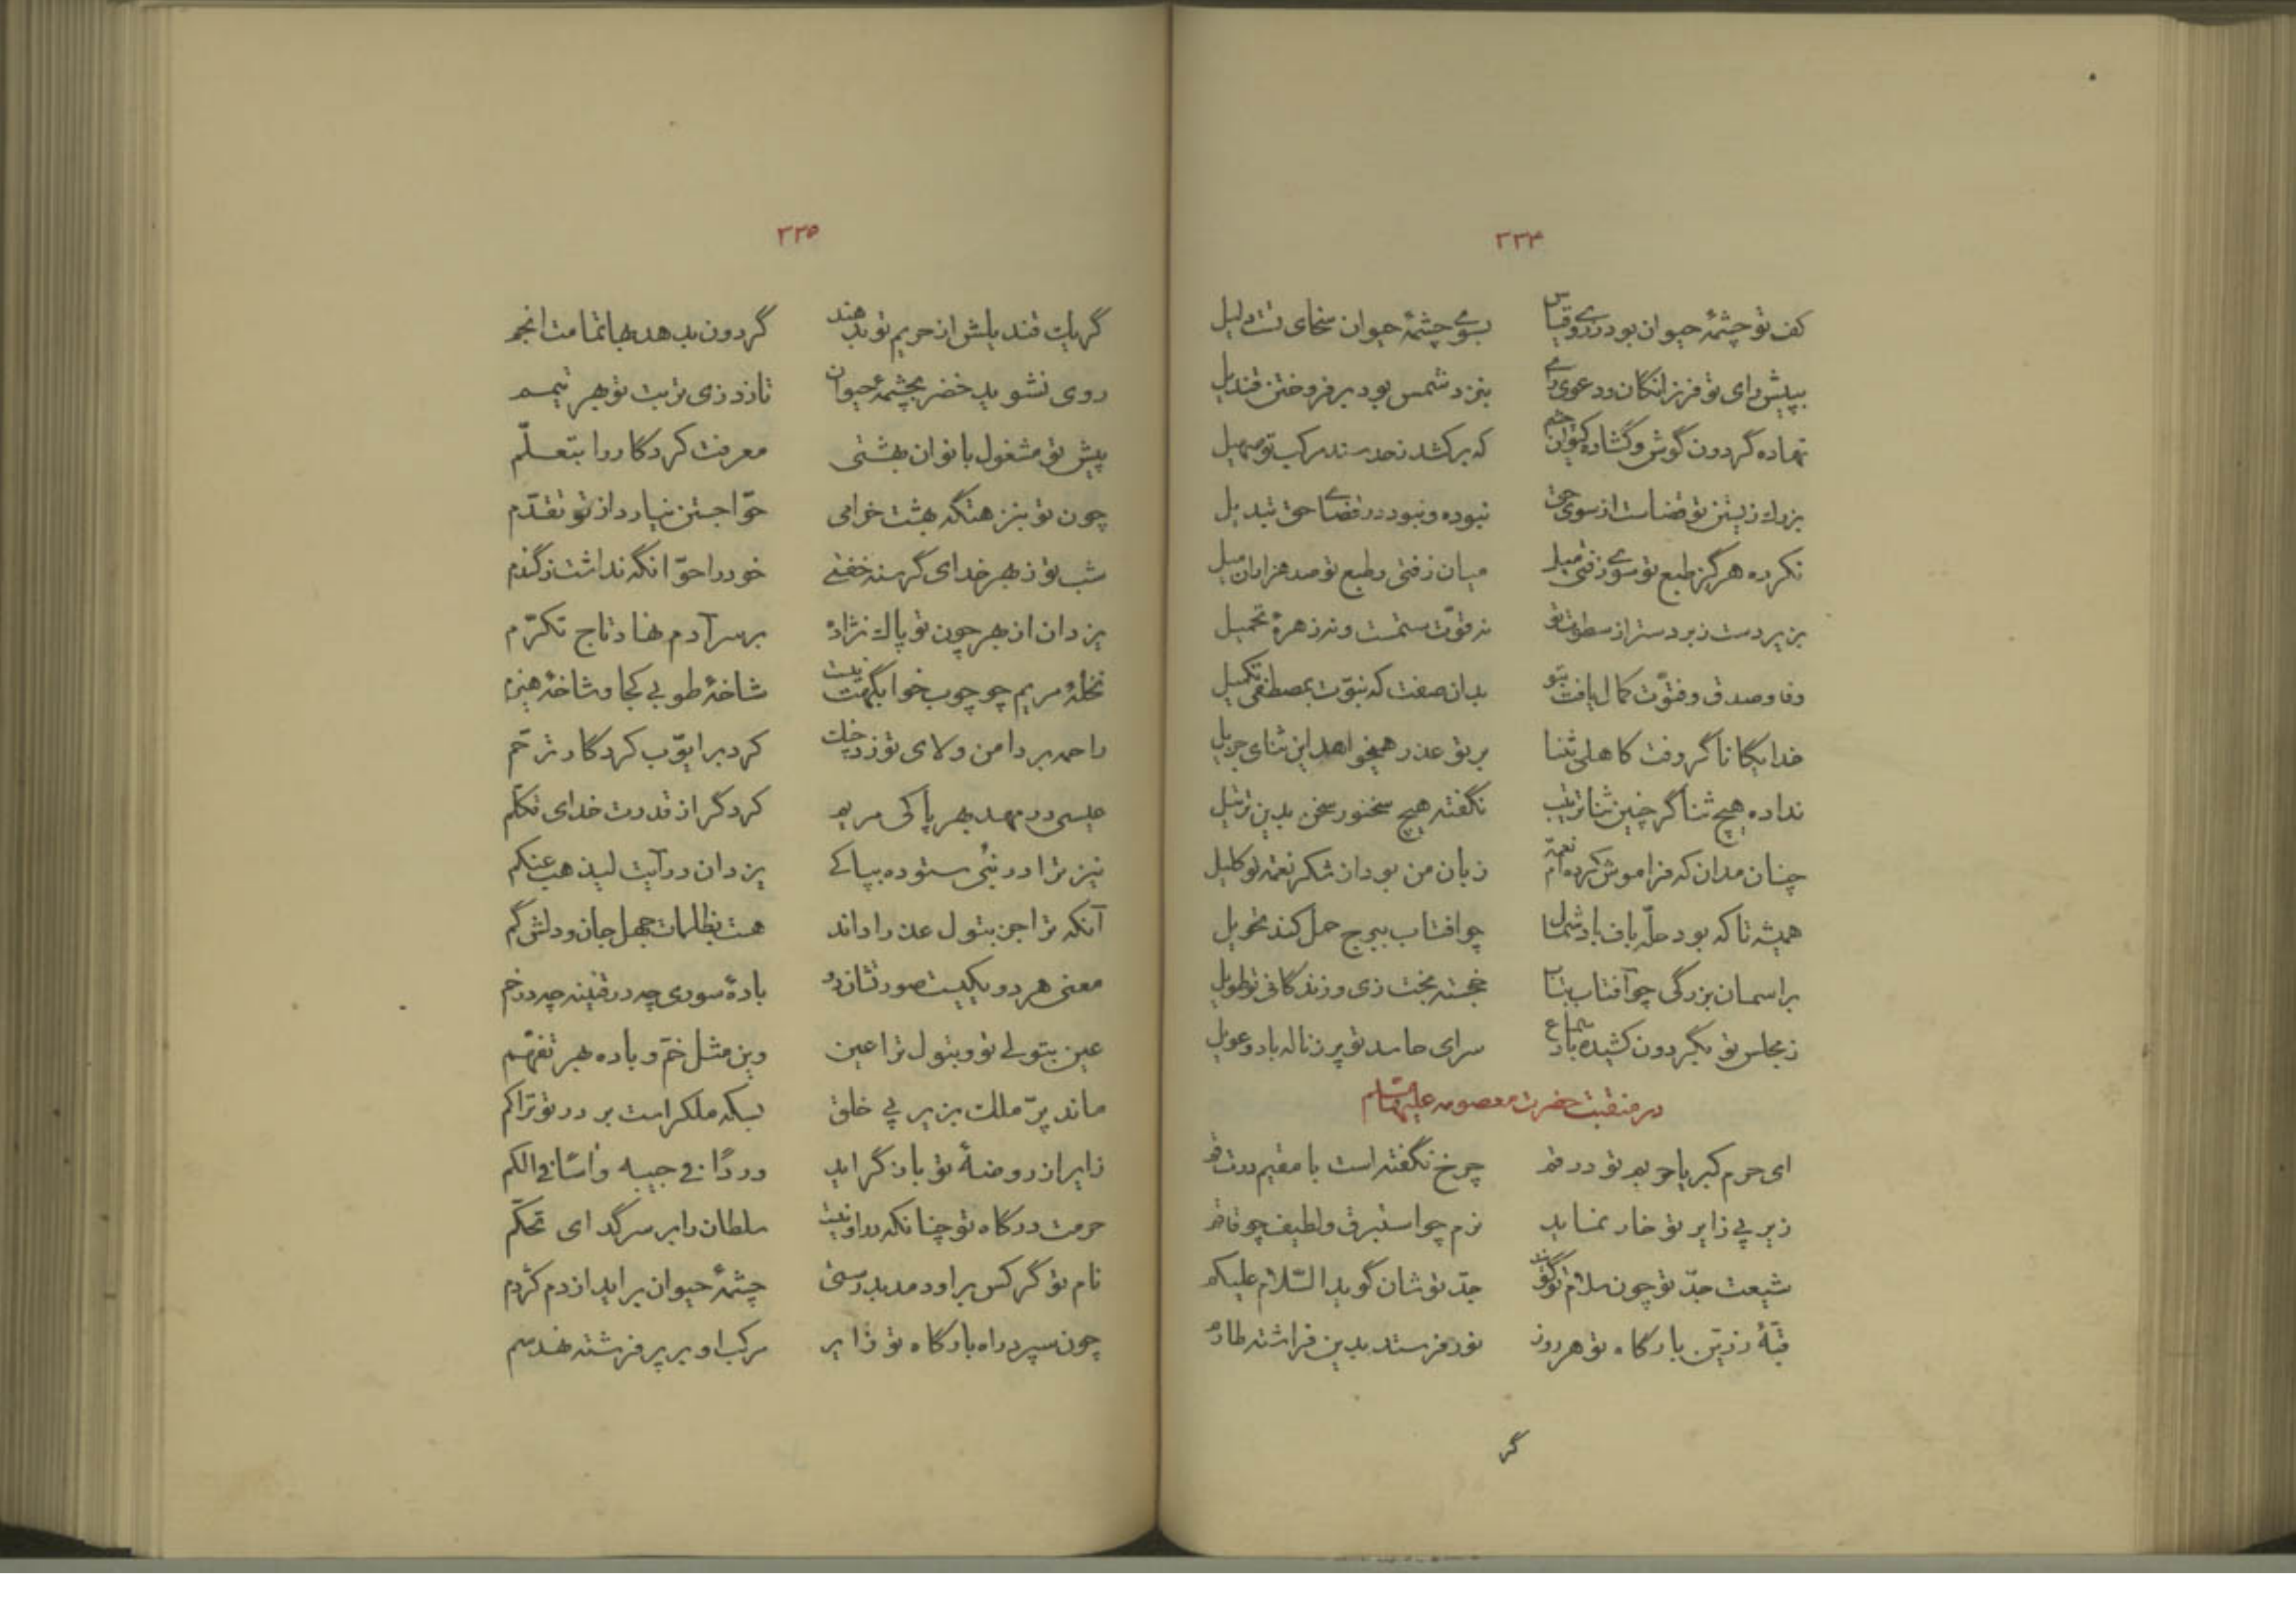 ۲۳۴
کف تو چشمهٔ حیوان بود درو بقیاس بسوی چشمهٔ حیوان سخای تست دلیل
به پیش رای تو فرزانگان و دعوی رای بنزد شمس بود برفروختن قندیل
نهاده گردون گوش و گشاده کیوان چشم که برکشد سند مرکب تو صهیل
بزرگ زیستن تو قضاست از سوی حق نبوده و نبود در قضای حق تبدیل
نکرده هرگز طبع تو سوی زفتی میل میان زفتی و طبع تو صد هزاران میل
بزیر دست زبردست از سطوت تو نه قوّت ستمست و نه زهرهٔ تحمیل
وفا و صدق و فتوّت کمال یافت بتو بدان صفت که نبوّت بمصطفی تکمیل
خدایگانا گر وقت کاهلی بثنا بر تو عذر همیخواهد این ثنای جزیل
نداده هیچ ثناگر چنین ثنا ترتیب نگفته هیچ سخنور سخن بدین ترتیل
چنان مدان که فراموش کرده‌ام نعمت زبان من بود از شکر نعمت تو کلیل
همیشه تا که بود حلّه باف باد شمال چو افتاب ببرج حمل کند تحویل
بر اسمان بزرگی چو آفتاب بتاب خجسته بخت زی و زندگانی تو طویل
ز مجلس تو بگردون کشیده باد سماع سرای حاسد تو پر ز ناله باد و عویل
در منقبت حضرت معصومه علیها السّلام
ای حرم کبریا حریم تو در قم چرخ نگفته است با مقیم درت قم
زیر پی زایر تو خار نماید نرم چو استبرق و لطیف چو قاقم
شیعت جدّ تو چون سلام تو گویند جدّ تو شان گوید السّلام علیکم
قبّهٔ زرّین بارگاه تو هر روز نور فرستد بدین فراشته طارم
گر
۲۳۵
گر یک قندیلش از حریم تو بدهند گردون بدهد بها تمامت انجم
روی نشوید خضر بچشمهٔ حیوان تا نزد زی تربت تو بهر تیمم
پیش تو مشغول بانوان بهشتی معرفت کردگار را بتعلّم
چون تو بنزهتگه بهشت خرامی حوّا جستن نیارد از تو تقدّم
شب تو ز بهر خدای گرسنه خفتی خود را حوّا نگه نداشت ز گندم
یزدان از بهر چون تو پاک نژادی بر سر آدم نهاد تاج تکرّم
نخلهٔ مریم چو چوب خوابگهت نیست شاخهٔ طوبی کجا و شاخهٔ هیزم
راحمه بر دامن ولای تو زد چنگ کرد بر ایوّب کردگار ترحّم
عیسی در مهد بهر پاکی مریم کرد گر از قدرت خدای تکلّم
نیز ترا در نُبی ستوده بپاکی یزدان در آیت لیذهب عنکم
آنکه ترا جز بتول عذرا داند هست بظلمات جهل جان و دلش گم
معنی هر دو یکیست صورتشان دو بادهٔ سوری چه در قنینه چه در خم
عین بتولی تو و بتول ترا عین وین مثل خمّ و باده بهر تفهّم
ماند پرّ ملک بزیر پی خلق بسکه ملک راست بر در تو تراکم
زایر از روضهٔ تو باز گراید درّاً فی جیبه و آساً فی الکم
حرمت درگاه تو چنانکه روا نیست سلطان را بر سر گدای تحکّم
نام تو گر کس برآورد مدد بدرستی چشمهٔ حیوان براید از دم کژدم
چون سپرد راه بارگاه تو زایر مرکب او بر پر فرشته نهد سم